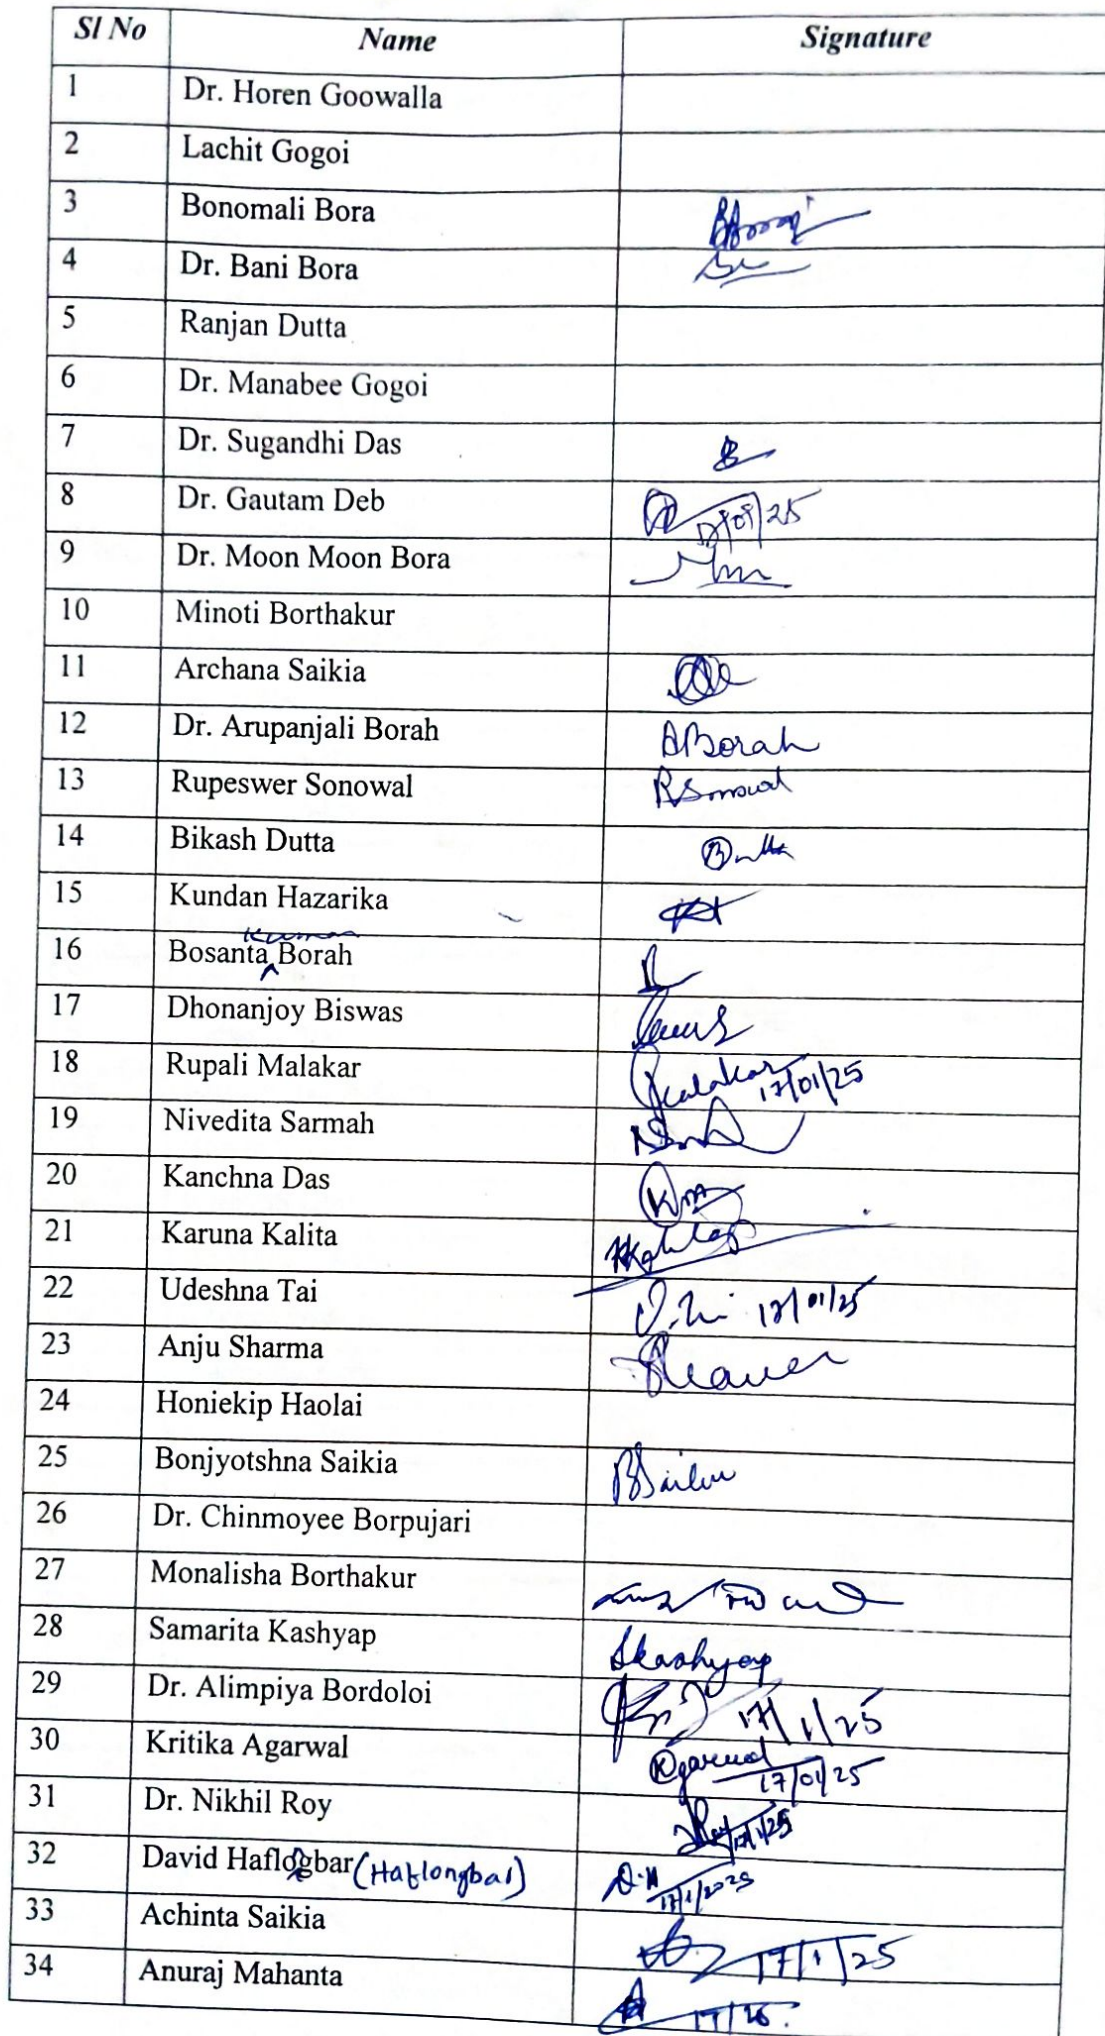 Sl No Name Signature
1 Dr. Horen Goowalla
2 Lachit Gogoi
3 Bonomali Bora
4 Dr. Bani Bora
5 Ranjan Dutta
6 Dr. Manabee Gogoi
7 Dr. Sugandhi Das
8 Dr. Gautam Deb
9 Dr. Moon Moon Bora
10 Minoti Borthakur
11 Archana Saikia
12 Dr. Arupanjali Borah ABorah
13 Rupeswer Sonowal RSonowal
14 Bikash Dutta
15 Kundan Hazarika
16 Bosanta Kumar Borah
17 Dhonanjoy Biswas
18 Rupali Malakar 17/01/25
19 Nivedita Sarmah
20 Kanchna Das
21 Karuna Kalita
22 Udeshna Tai 17/01/25
23 Anju Sharma
24 Honiekip Haolai
25 Bonjyotshna Saikia BSaikia
26 Dr. Chinmoyee Borpujari
27 Monalisha Borthakur
28 Samarita Kashyap SKashyap
29 Dr. Alimpiya Bordoloi 17/1/25
30 Kritika Agarwal 17/01/25
31 Dr. Nikhil Roy 17/1/25
32 David Haflogbar (Haflongbar) D.H 17/1/2025
33 Achinta Saikia 17/1/25
34 Anuraj Mahanta